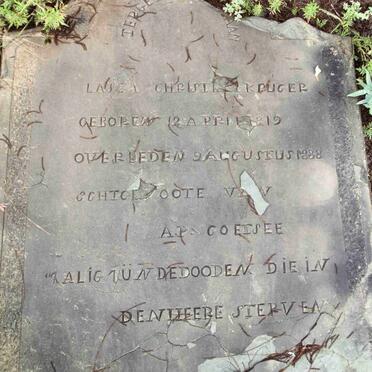 TER
LAUSA CHRISTI KRUGER
GEBOREN 12 APRIL 1819
OVERLEDEN 9 AUGUSTUS 1888
ECHTGENOOTE VAN
COETSEE
ZALIG ZÜN DE DOODEN DIE IN
DEN HEERE STERVEN